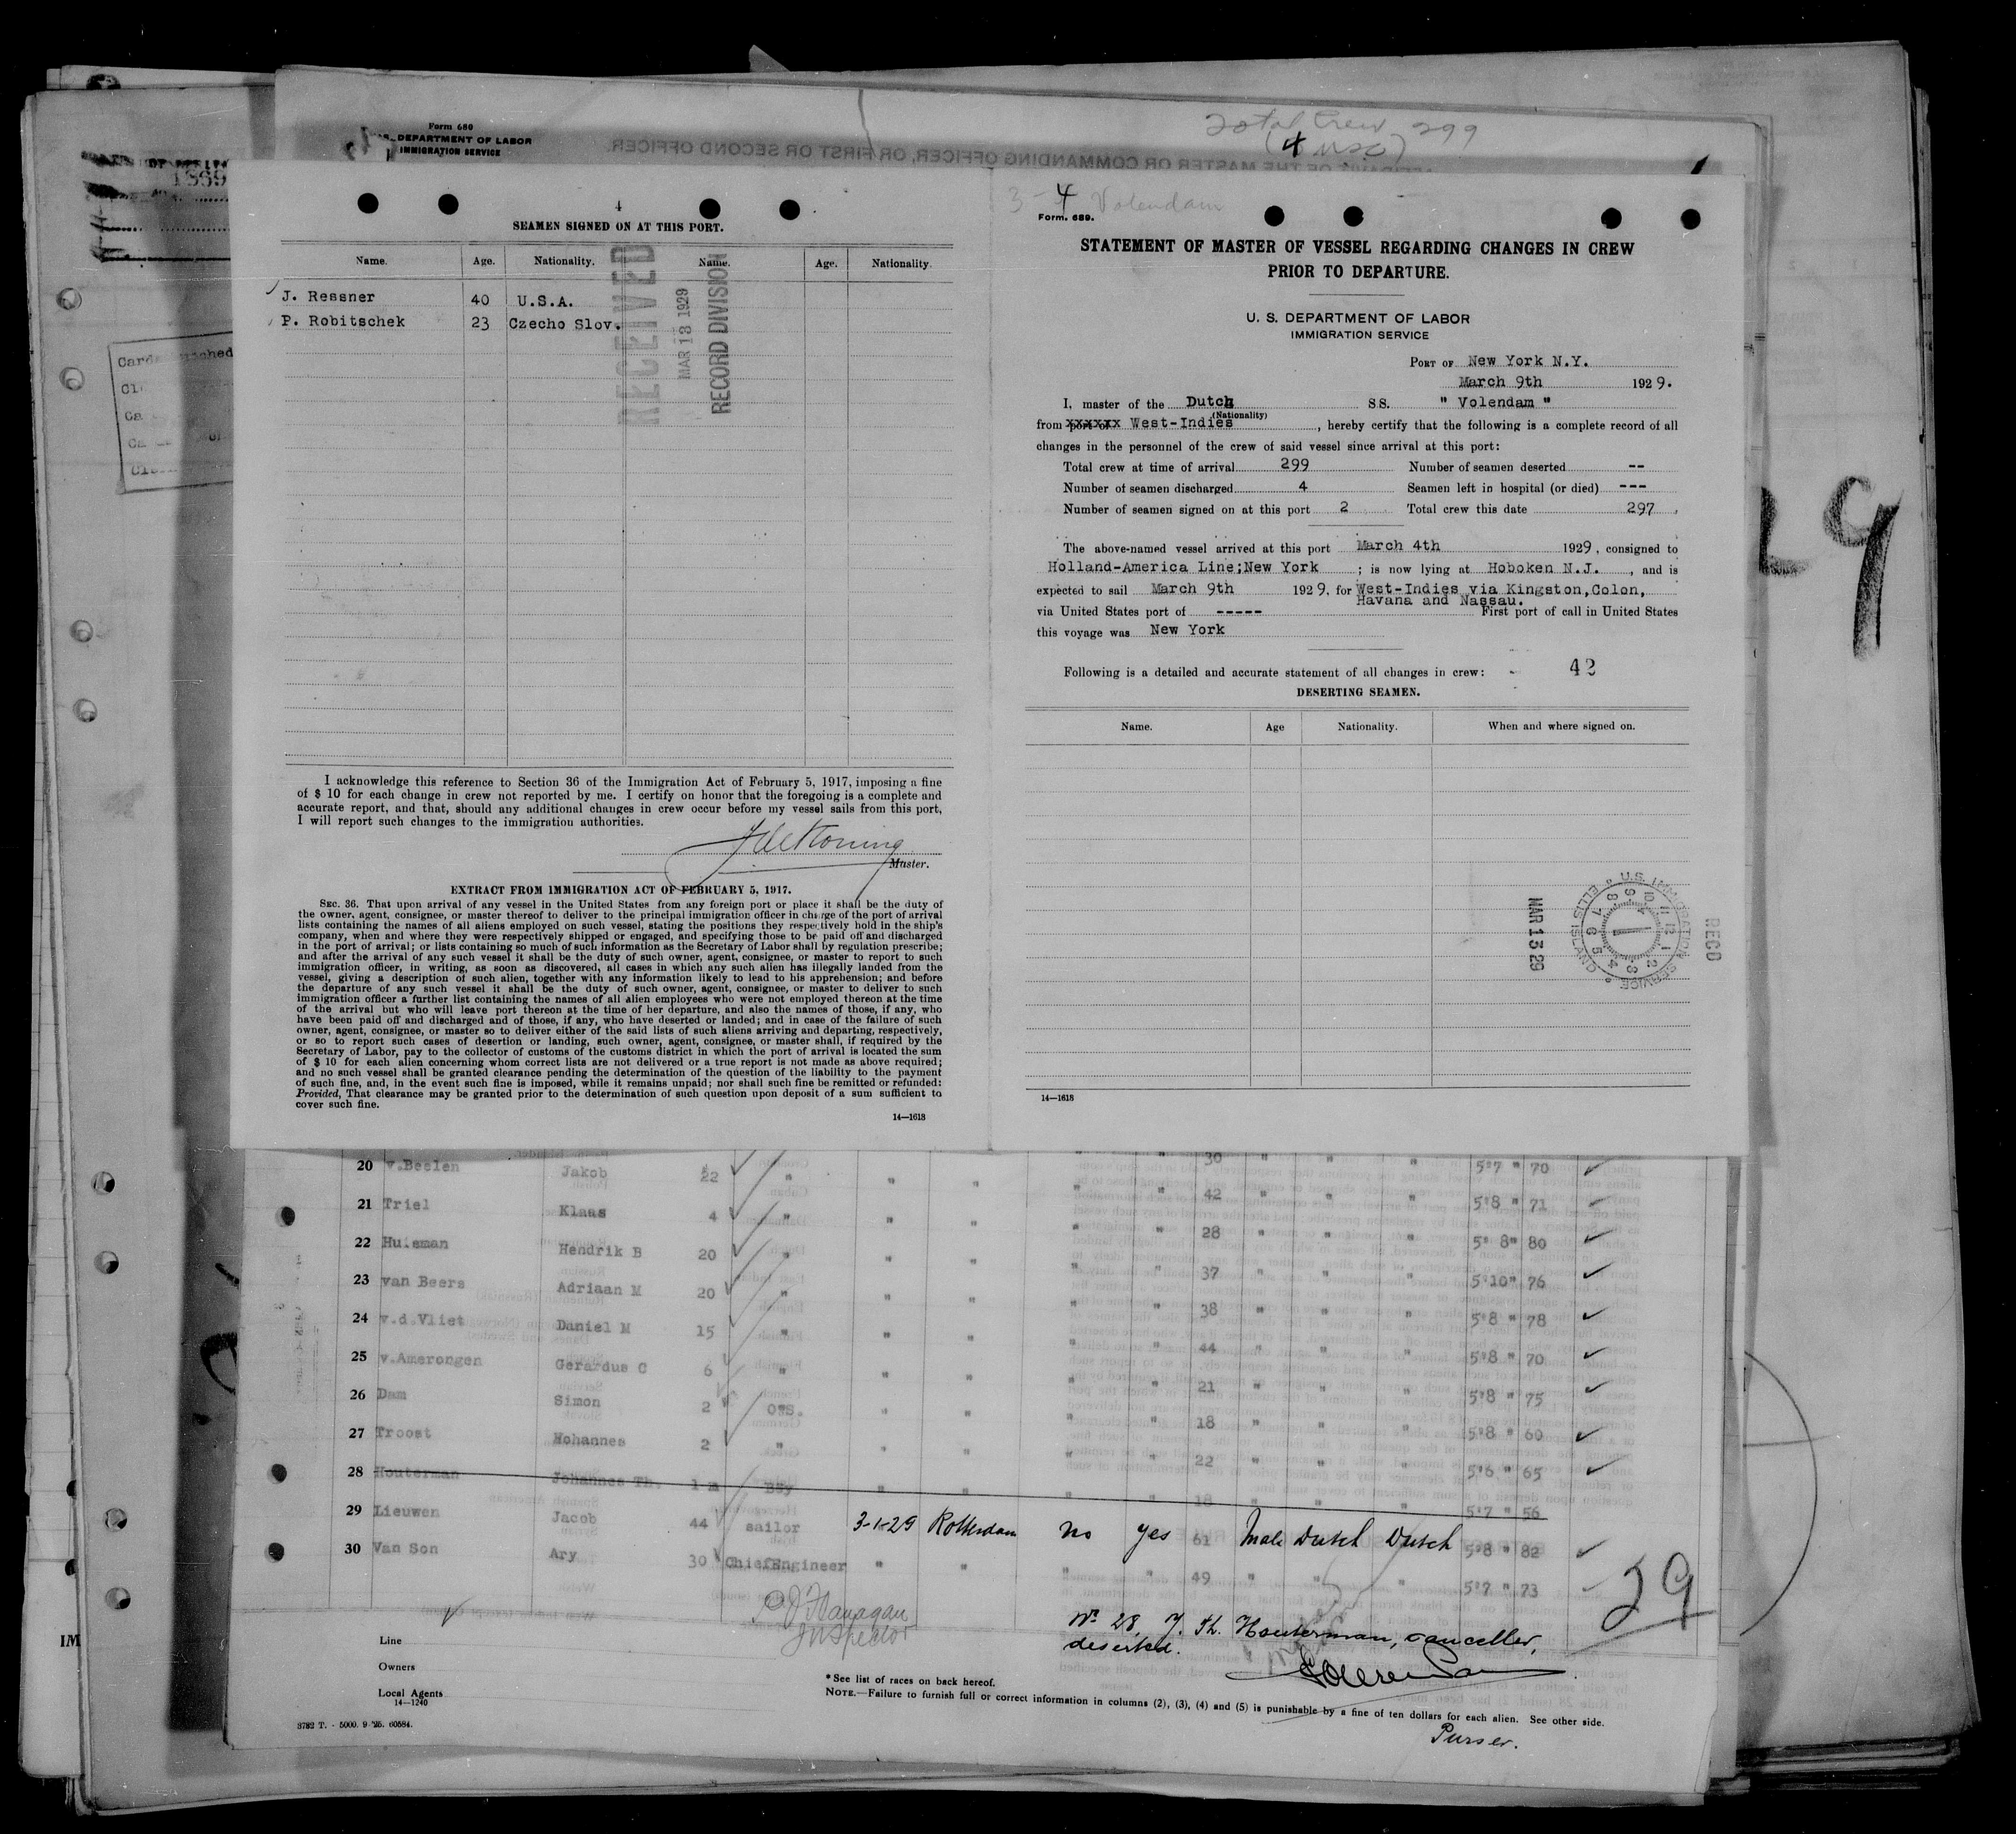 Form 680
DEPARTMENT OF LABOR
IMMIGRATION SERVICE
Total Crew 299
4
SEAMEN SIGNED ON AT THIS PORT.
Name. Age. Nationality. Name. Age. Nationality.
J. Ressner 40 U.S.A.
P. Robitschek 23 Czecho Slov.
RECEIVED
MAR 13 1929
RECORD DIVISION
I acknowledge this reference to Section 36 of the Immigration Act of February 5, 1917, imposing a fine
of $ 10 for each change in crew not reported by me. I certify on honor that the foregoing is a complete and
accurate report, and that, should any additional changes in crew occur before my vessel sails from this port,
I will report such changes to the immigration authorities.
Master.
EXTRACT FROM IMMIGRATION ACT OF FEBRUARY 5, 1917.
SEC. 36. That upon arrival of any vessel in the United States from any foreign port or place it shall be the duty of
the owner, agent, consignee, or master thereof to deliver to the principal immigration officer in charge of the port of arrival
lists containing the names of all aliens employed on such vessel, stating the positions they respectively hold in the ship's
company, when and where they were respectively shipped or engaged, and specifying those to be paid off and discharged
in the port of arrival; or lists containing so much of such information as the Secretary of Labor shall by regulation prescribe;
and after the arrival of any such vessel it shall be the duty of such owner, agent, consignee, or master to report to such
immigration officer, in writing, as soon as discovered, all cases in which any such alien has illegally landed from the
vessel, giving a description of such alien, together with any information likely to lead to his apprehension; and before
the departure of any such vessel it shall be the duty of such owner, agent, consignee, or master to deliver to such
immigration officer a further list containing the names of all alien employees who were not employed thereon at the time
of the arrival but who will leave port thereon at the time of her departure, and also the names of those, if any, who
have been paid off and discharged and of those, if any, who have deserted or landed; and in case of the failure of such
owner, agent, consignee, or master so to deliver either of the said lists of such aliens arriving and departing, respectively,
or so to report such cases of desertion or landing, such owner, agent, consignee, or master shall, if required by the
Secretary of Labor, pay to the collector of customs of the customs district in which the port of arrival is located the sum
of $ 10 for each alien concerning whom correct lists are not delivered or a true report is not made as above required;
and no such vessel shall be granted clearance pending the determination of the question of the liability to the payment
of such fine, and, in the event such fine is imposed, while it remains unpaid; nor shall such fine be remitted or refunded:
Provided, That clearance may be granted prior to the determination of such question upon deposit of a sum sufficient to
cover such fine.
14—1618
3-4 Volendam
Form. 689.
STATEMENT OF MASTER OF VESSEL REGARDING CHANGES IN CREW
PRIOR TO DEPARTURE.
U. S. DEPARTMENT OF LABOR
IMMIGRATION SERVICE
PORT OF New York N.Y.
March 9th 1929.
I, master of the Dutch SS. " Volendam "
(Nationality)
from West-Indies, hereby certify that the following is a complete record of all
changes in the personnel of the crew of said vessel since arrival at this port:
Total crew at time of arrival 299 Number of seamen deserted --
Number of seamen discharged 4 Seamen left in hospital (or died) ---
Number of seamen signed on at this port 2 Total crew this date 297
The above-named vessel arrived at this port March 4th 1929, consigned to
Holland-America Line;New York ; is now lying at Hoboken N.J. , and is
expected to sail March 9th 1929, for West-Indies via Kingston,Colon,
Havana and Nassau.
via United States port of ----- First port of call in United States
this voyage was New York
Following is a detailed and accurate statement of all changes in crew: - 42
DESERTING SEAMEN.
Name. Age Nationality. When and where signed on.
REC'D
U.S. IMMIGRATION SERVICE ELLIS ISLAND
MAR 13 29
14—1618
20 v.Beelen Jakob 22 " " " " " 30 " " " 5'7 " 70
21 Triel Klaas 4 " " " " " 42 " " " 5'8 " 71
22 Huisman Hendrik B 20 " " " " " 28 " " " 5' 8" 80
23 van Beers Adriaan M 20 " " " " " 37 " " " 5'10" 76
24 v.d.Vliet Daniel M 15 " " " " " 38 " " " 5'8 " 78
25 v.Amerongen Gerardus C 6 " " " " " 44 " " " 5'8 " 70
26 Dam Simon 2 O.S. " " " " 21 " " " 5'8 " 75
27 Troost Hohannes 2 " " " " " 18 " " " 5'8 " 60
28 Houterman Johannes Th. 1 m Boy " " " " 22 " " " 5'6 " 65
29 Lieuwen Jacob 44 sailor 3-1-29 Rotterdam no yes 61 Male Dutch Dutch 5'8 " 82
30 Van Son Ary 30 ChiefEngineer " " " " 49 " " " 5'7 " 73
18 5'7 " 56
P J Flanagan
Inspector
No 28, J. Th. Houterman, cancelled,
deserted.
29
Line
Owners
Local Agents
14—1240
* See list of races on back hereof.
NOTE.—Failure to furnish full or correct information in columns (2), (3), (4) and (5) is punishable by a fine of ten dollars for each alien. See other side.
Purser.
3782 T. - 5000. 9 '25. 60584.